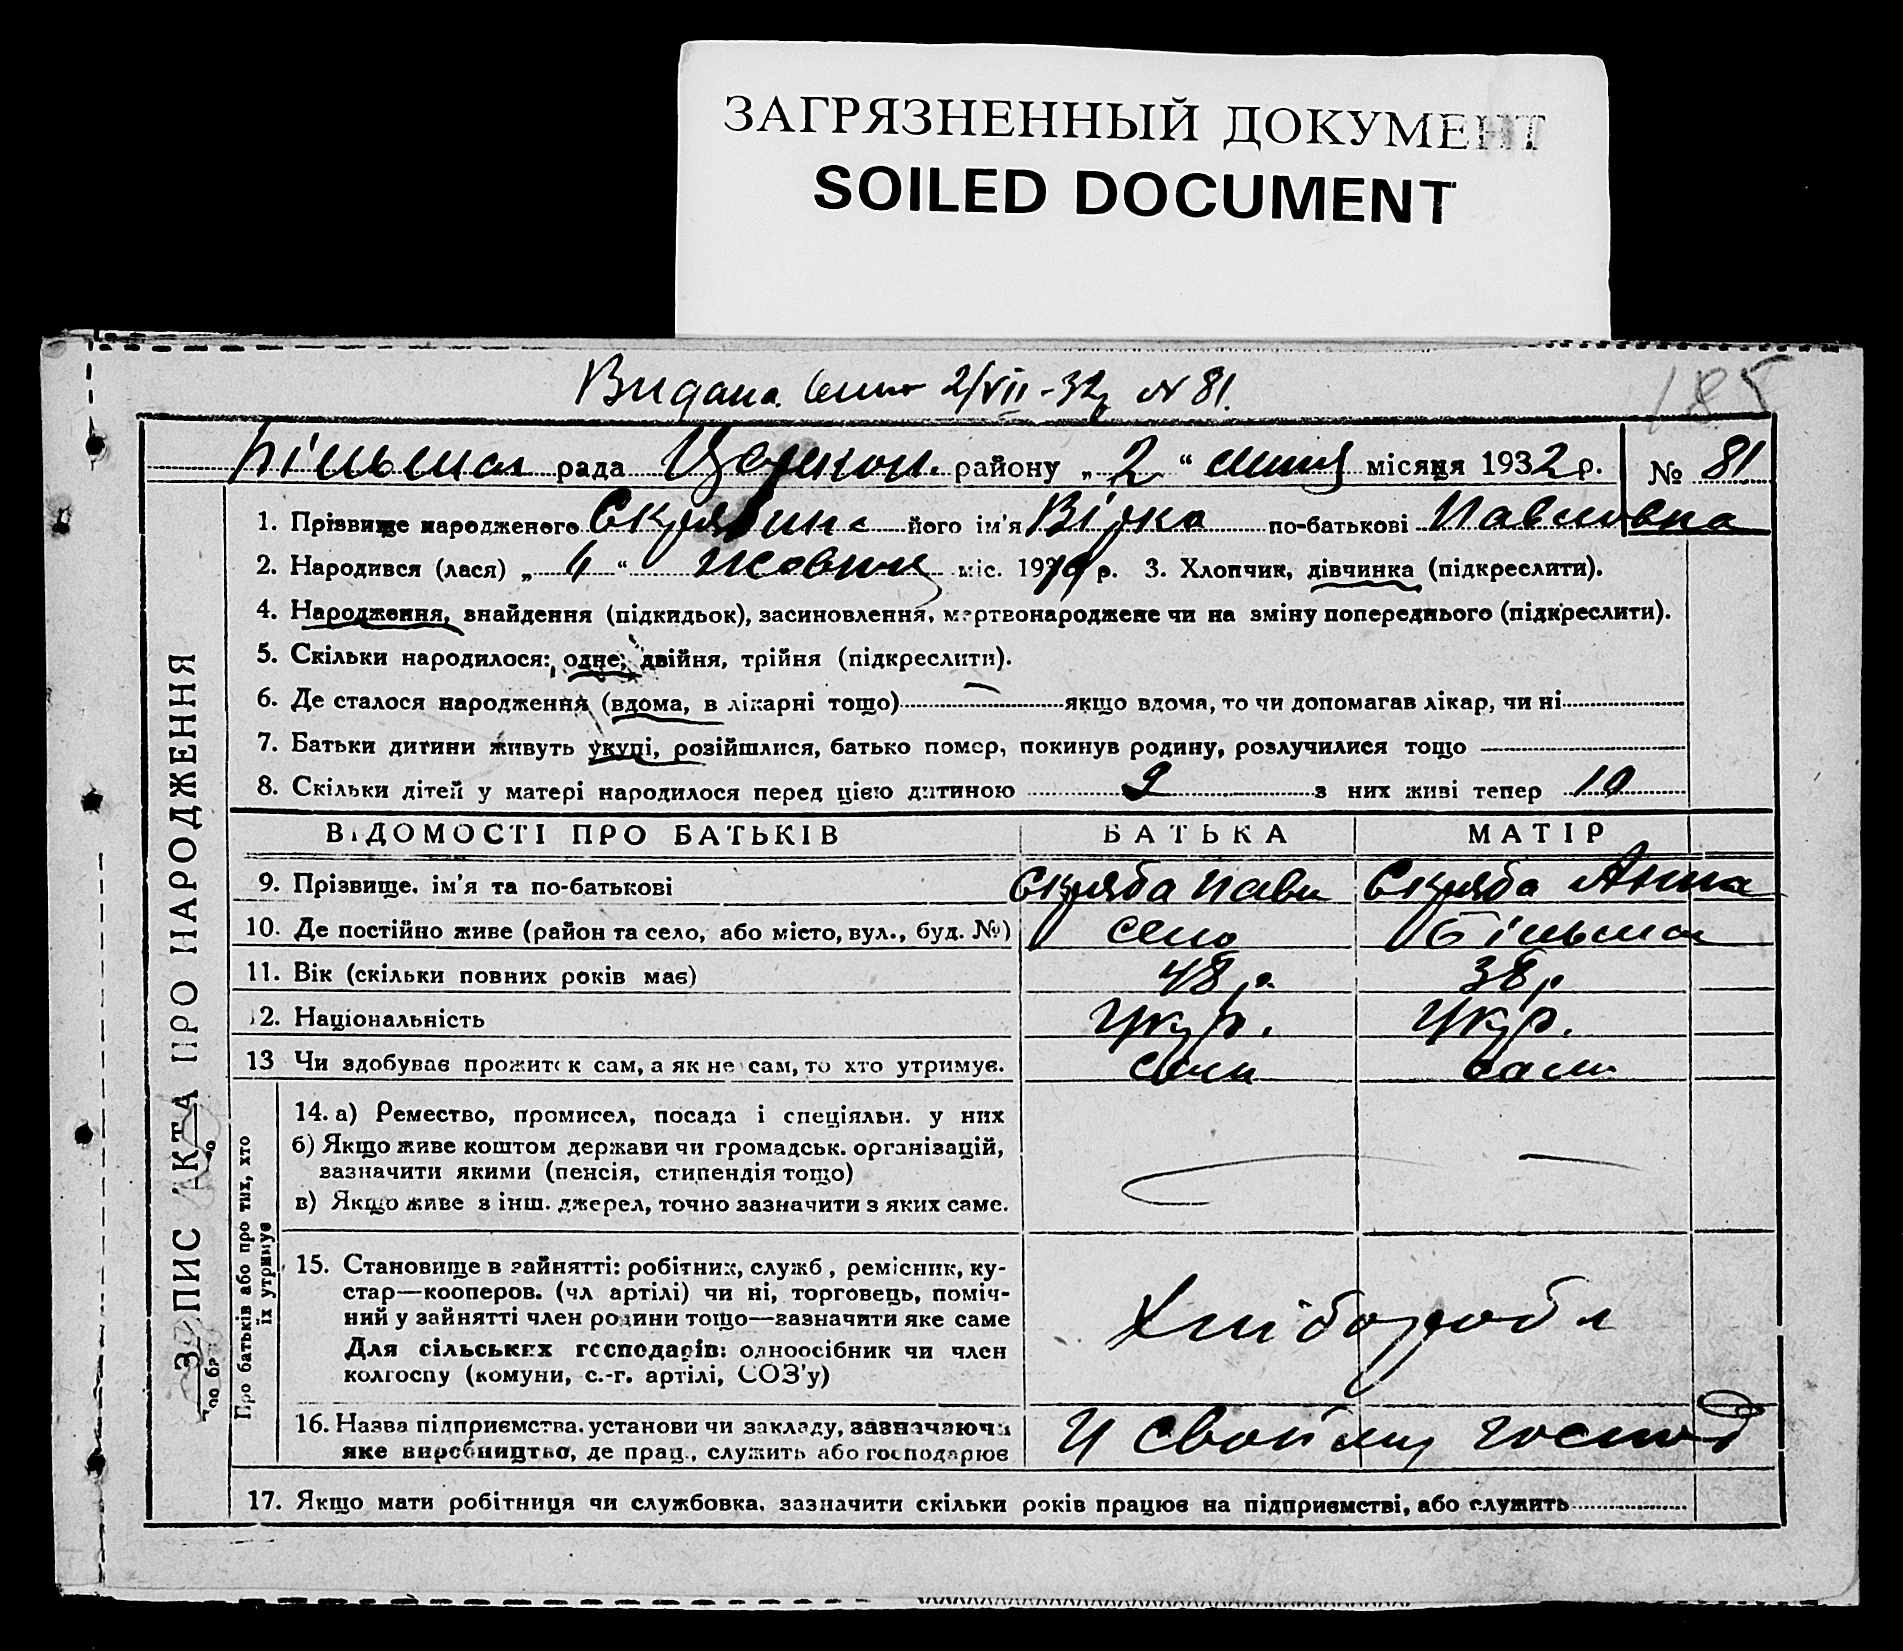 ЗАГРЯЗНЕННЫЙ ДОКУМЕНТ
SOILED DOCUMENT
Видана 2/VII-32 № 81.
185
рада району „2“ місяця 1932 р. № 81
1. Прізвище народженого його ім'я по-батькові Павловна
2. Народився (лася) „ “ міс. 19 р. 3. Хлопчик, дівчинка (підкреслити).
4. Народження, знайдення (підкидьок), засиновлення, мертвонароджене чи на зміну попереднього (підкреслити).
5. Скільки народилося: одне, двійня, трійня (підкреслити).
6. Де сталося народження (вдома, в лікарні тощо) якщо вдома, то чи допомагав лікар, чи ні
7. Батьки дитини живуть укупі, розійшлися, батько помер, покинув родину, розлучилися тощо
8. Скільки дітей у матері народилося перед цією дитиною 9 з них живі тепер 10
ВІДОМОСТІ ПРО БАТЬКІВ БАТЬКА МАТІР
9. Прізвище, ім'я та по-батькові Скряба Павл Скряба Анна
10. Де постійно живе (район та село, або місто, вул., буд. №) село
11. Вік (скільки повних років має) 48 р. 38 р
12. Національність Укр. Укр.
13 Чи здобуває прожиток сам, а як не сам, то хто утримує. сам сама
14. а) Ремество, промисел, посада і спеціяльн. у них
б) Якщо живе коштом держави чи громадськ. організацій,
зазначити якими (пенсія, стипендія тощо)
в) Якщо живе з інш. джерел, точно зазначити з яких саме.
15. Становище в зайнятті: робітник, служб., ремісник, ку-
стар—кооперов. (чл артілі) чи ні, торговець, поміч-
ний у зайнятті член родини тощо—зазначити яке саме
Для сільських господарів: одноосібник чи член
колгоспу (комуни, с.-г. артілі, СОЗ'у)
Хлібороб
16. Назва підприємства, установи чи закладу, зазначаючи
яке виробництво, де прац., служить або господарює
У свойму господ
17. Якщо мати робітниця чи службовка, зазначити скільки років працює на підприємстві, або служить
ЗАПИС АКТА ПРО НАРОДЖЕННЯ
Про батьків або про тих, хто
їх утримує